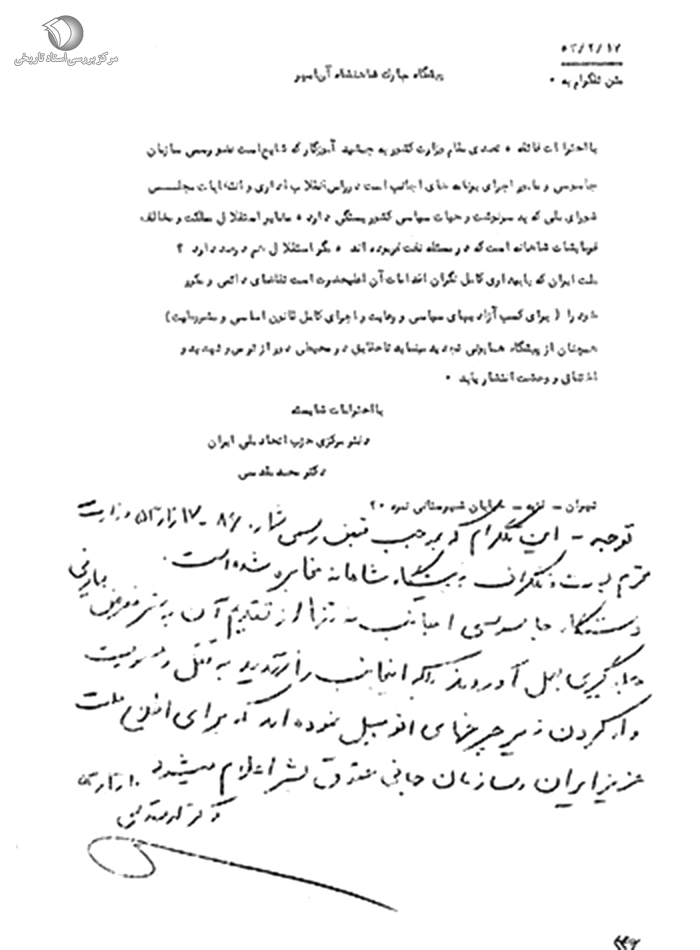 مرکز بررسی اسناد تاریخی
۵۳/۲/۱۷
متن تلگرام به ۰
پیشگاه مبارک شاهنشاه آریامهر
با احترامات فائقه ۰ تصدی مقام وزارت کشور به جمشید آموزگار که شایع است عضو رسمی سازمان
جاسوسی و مامور اجرای برنامه های اجانب است در راس انقلاب اداری و انتخابات مجلسی
شورای ملی که بد سرنوشت و حیات سیاسی کشور بستگی دارد ۰ مغایر استقلال مملکت و مخالف
فرمایشات شاهانه است که در مسئله نفت فرموده اند ۰ مگر استقلال هم درصد دارد ؟
ملت ایران که با بیداری کامل نگران اقدامات آن اعلیحضرت است تقاضای دائمی و مکرر
خود را ( برای کسب آزادیهای سیاسی و رعایت و اجرای کامل قانون اساسی و مشروطیت)
همچنان از پیشگاه همایونی تجدید مینماید تا حقایق در محیطی دور از ترس و تهدید و
اختناق و وحشت انتشار یابد ۰
با احترامات شایسته
دفتر مرکزی حزب اتحاد ملی ایران
دکتر محمد مقدسی
تهران - خیابان شهرستانی نمره ۲۰
توجه - این تلگرام که بموجب قبض رسمی شماره ۸۶۰ - ۱۷ وزارت
محترم پست و تلگراف به پیشگاه شاهانه مخابره شده است.
دستگاه جاسوسی اجانب نه تنها از تقدیم آن به
جلوگیری بعمل آوردند بلکه اینجانب را تهدید به قتل و مسمومیت
و له کردن زیر چرخهای اتومبیل نموده اند که برای اطلاع ملت
عزیز ایران و سازمان جهانی حقوق بشر اعلام میشود
دکتر مقدسی